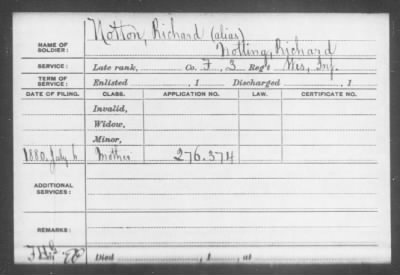 NAME OF SOLDIER: Notton, Richard (alias)
Notting, Richard
SERVICE: Late rank, Co. F. 3 Reg't Wis, Inf.
TERM OF SERVICE: Enlisted , 1 Discharged , 1
DATE OF FILING. CLASS. APPLICATION NO. LAW. CERTIFICATE NO.
Invalid,
Widow,
Minor,
1880. July 6 Mother 276.374
ADDITIONAL SERVICES:
REMARKS:
Died , 1 , at